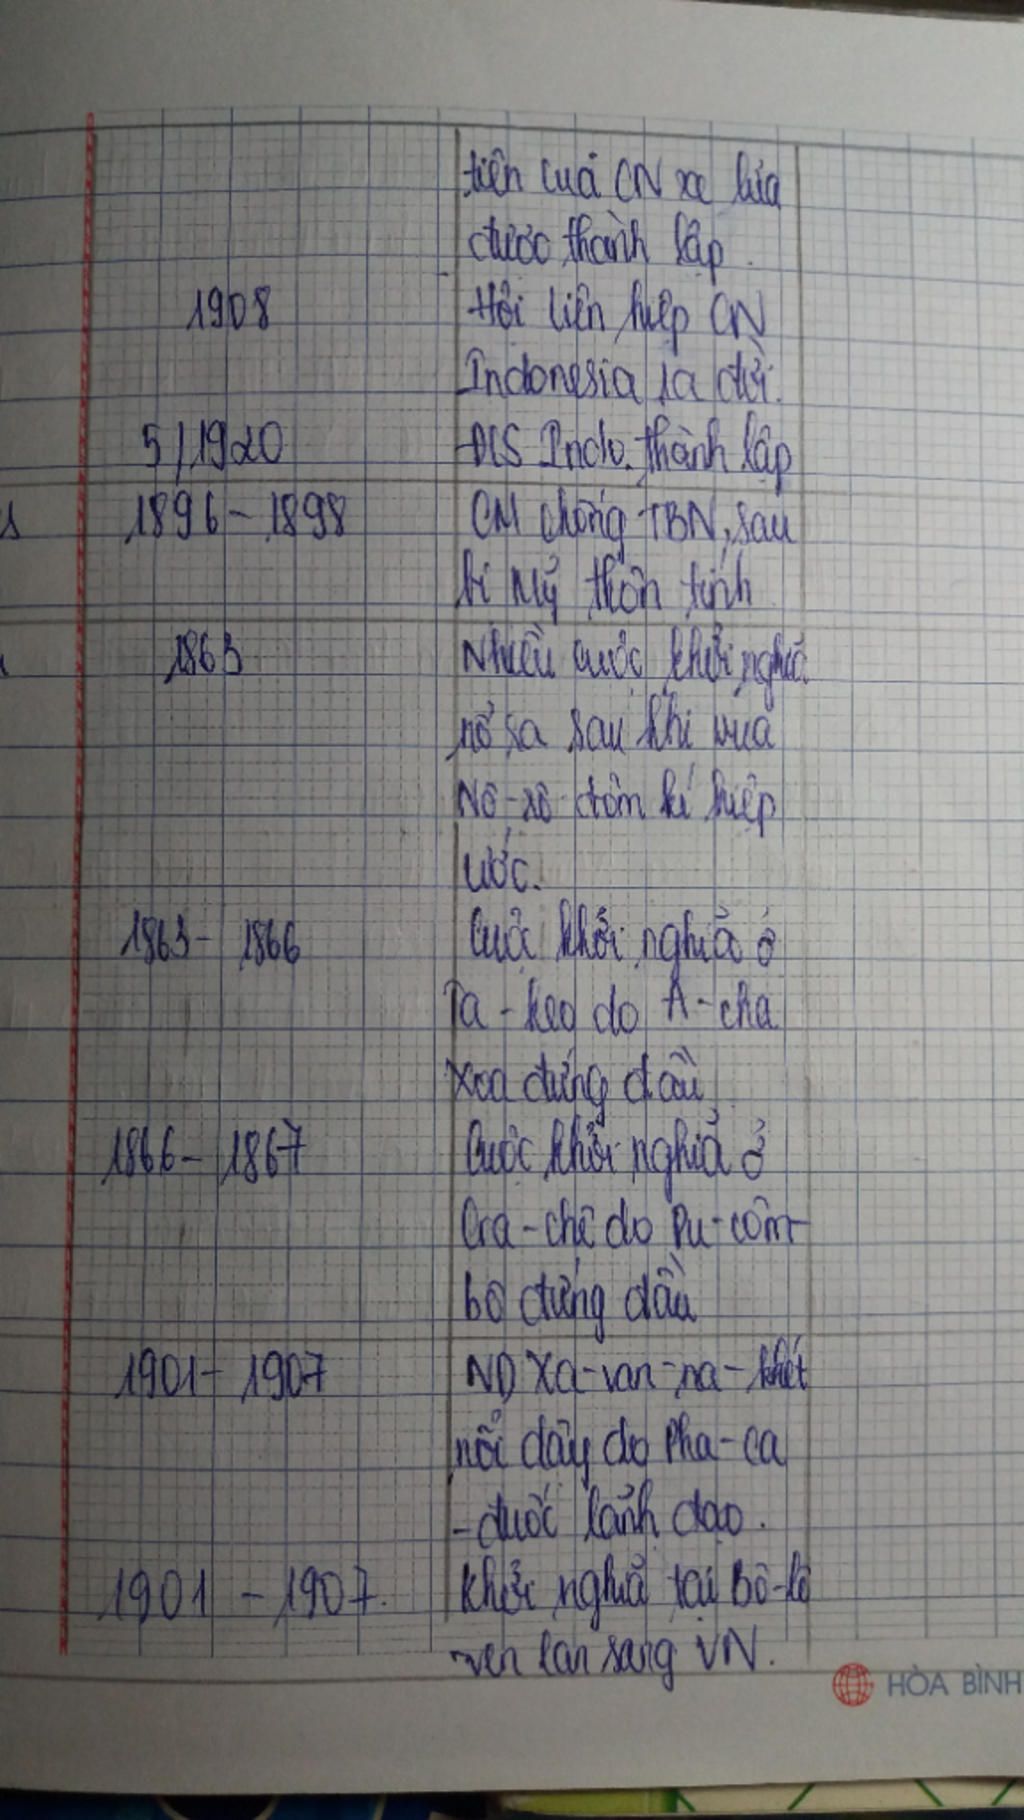 tiên của CN xe lửa
được thành lập.
1908 Hội liên hiệp CN
Indonesia ra đời.
5/1920 ĐCS Indo. thành lập
1896 - 1898 CM chống TBN, sau
bị Mỹ thôn tính
1863 Nhiều cuộc khởi nghĩa
nổ ra sau khi vua
Nô-rô-đôm kí hiệp
ước.
1863 - 1866 Cuộc khởi nghĩa ở
Ta-keo do A-cha
Xoa đứng đầu
1866 - 1867 Cuộc khởi nghĩa ở
Cra-chê do Pu-côm-
bô đứng đầu
1901 - 1907 ND Xa-van-na-khét
nổi dậy do Pha-ca
-đuốc lãnh đạo.
1901 - 1907. Khởi nghĩa tại Bô-lô
ven lan sang VN.
HÒA BÌNH